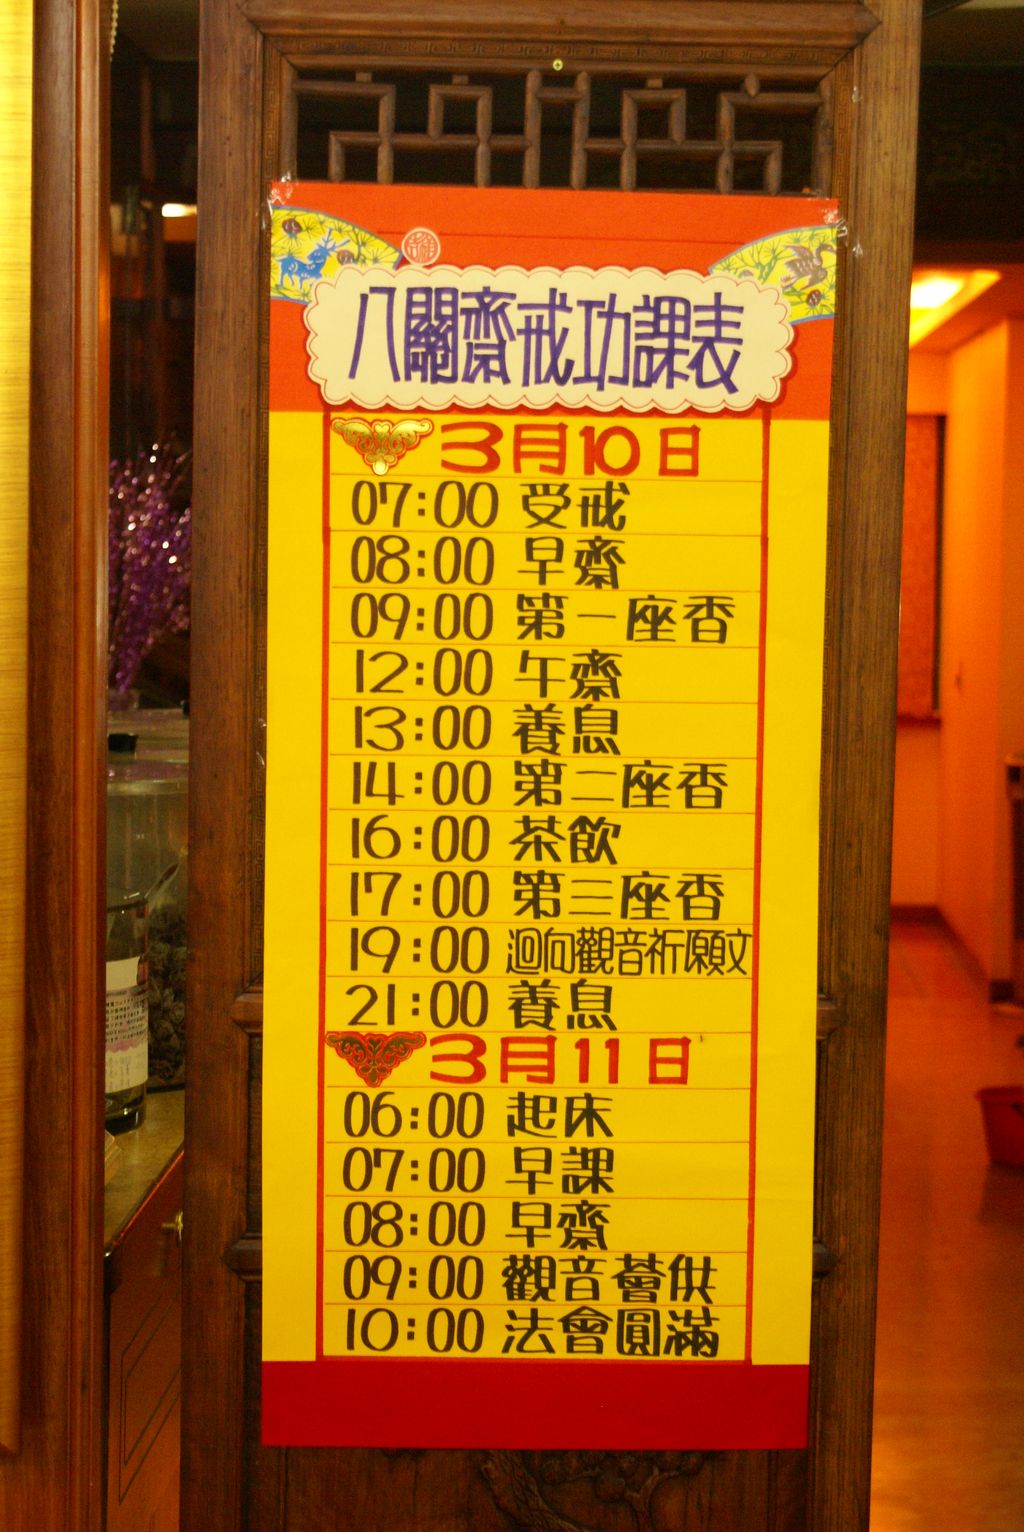 八關齋戒功課表
3月10日
07:00 受戒
08:00 早齋
09:00 第一座香
12:00 午齋
13:00 養息
14:00 第二座香
16:00 茶飲
17:00 第三座香
19:00 迴向觀音祈願文
21:00 養息
3月11日
06:00 起床
07:00 早課
08:00 早齋
09:00 觀音薈供
10:00 法會圓滿